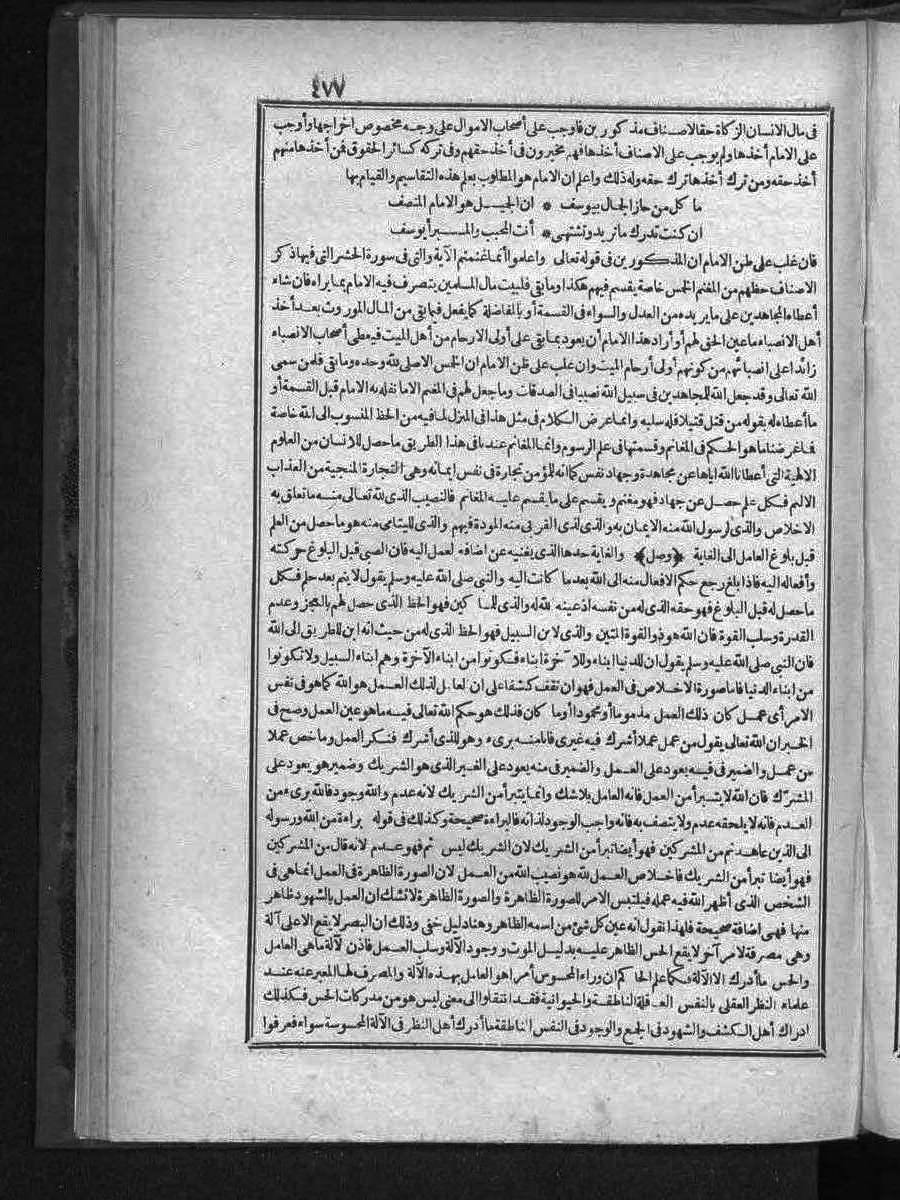 ٤٧٧
في مال الانسان الزكاة حقا لاصناف مذكورين فاوجب على أصحاب الاموال على وجه مخصوص اخراجها وأوجب
على الامام أخذها ولم يوجب على الاصناف أخذها فهم مخيرون في أخذ حقهم وفي تركه كسائر الحقوق فمن أخذها منهم
أخذ حقه ومن ترك أخذها ترك حقه وله ذلك واعلم ان الامام هو المطلوب بعلم هذه التقاسيم والقيام بها
ما كل من حاز الجمال بيوسف * ان الجميل هو الامام المنصف
ان كنت تدرك ما تريد وتشتهى * أنت المحبب والمسبر أيوسف
فان غلب على ظن الامام ان المذكورين في قوله تعالى واعلموا أنما غنمتم الآية والتى في سورة الحشر التي فيها ذكر
الاصناف حظهم من المغنم الخمس خاصة يقسم فيهم هكذا وما بقى فلبيت مال المسلمين يتصرف فيه الامام بما يراه فان شاء
أعطاه المجاهدين على ما يريده من العدل والسواء في القسمة أو بالمفاضلة كما يفعل فيما بقى من المال الموروث بعد أخذ
أهل الانصباء ما عين الحق لهم أو أراد هذا الامام أن يعود بما بقى على أولى الارحام من أهل الميت فيعطى أصحاب الانصباء
زائدا على انصبائهم من كونهم أولى أرحام الميت وان غلب على ظن الامام ان الخمس الاصلى لله وحده وما بقى فلمن سمى
الله تعالى وقد جعل الله للمجاهدين في سبيل الله نصيبا في الصدقات وما جعل لهم في المغنم الا ما نفله به الامام قبل القسمة أو
ما أعطاه له بقوله من قتل قتيلا فله سلبه وانما عرض الكلام في مثل هذا في المنزل لما فيه من الحظ المنسوب الى الله خاصة
فاغرضنا ما هو الحكم في المغانم وقسمتها في علم الرسوم وانما المغانم عندنا في هذا الطريق ما حصل للانسان من العلوم
الالهية التى أعطانا الله اياها عن مجاهدة وجهاد نفس كما انه للمؤمن تجارة في نفس ايمانه وهى التجارة المنجية من العذاب
الاليم فكل علم حصل عن جهاد فهو مغنم ويقسم على ما يقسم عليه المغانم فالنصيب الذى لله تعالى منه ما تعلق به
الاخلاص والذى لرسول الله منه الايمان به والذى لذى القربى منه المودة فيهم والذى لليتامى منه هو ما حصل من العلم
قبل بلوغ العامل الى الغاية ﴿وصل﴾ والغاية حدها الذى يغنيه عن اضافة لعمل اليه فان الصبى قبل البلوغ حركته
وأفعاله اليه فاذا بلغ رجع حكم الافعال منه الى الله بعد ما كانت اليه والنبى صلى الله عليه وسلم يقول لا يتم بعد حلم فكل
ما حصل له قبل البلوغ فهو حقه الذى له من نفسه اذ عينه لله له والذى للمساكين فهو الحظ الذى حصل لهم بالعجز وعدم
القدرة وسلب القوة فان الله هو ذو القوة المتين والذى لابن السبيل فهو الحظ الذى له من حيث انه ابن للطريق الى الله
فان النبى صلى الله عليه وسلم يقول ان للدنيا ابناء وللآخرة ابناء فكونوا من ابناء الآخرة وهم ابناء السبيل ولا تكونوا
من ابناء الدنيا فاما صورة الاخلاص في العمل فهو ان تقف كشفا على ان العامل لذلك العمل هو الله كما هو في نفس
الامر أى عمل كان ذلك العمل مذموما أو محمودا أو ما كان فذلك هو حكم الله تعالى فيه ما هو عين العمل وصح في
الخبر ان الله تعالى يقول من عمل عملا أشرك فيه غيرى فانا منه برىء وهو للذى أشرك فنكر العمل وما خص عملا
من عمل والضمير في فيه يعود على العمل والضمير في منه يعود على الغير الذى هو الشريك وضمير هو يعود على
المشرك فان الله لا يتبرأ من العمل فانه العامل بلا شك وانما يتبرأ من الشريك لانه عدم والله وجود فالله برىء من
العدم فانه لا يلحقه عدم ولا يتصف به فانه واجب الوجود لذاته فالبراءة صحيحة وكذلك في قوله براءة من الله ورسوله
الى الذين عاهدتم من المشركين فهو أيضا تبرأ من الشريك لان الشريك ليس ثم فهو عدم لانه قال من المشركين
فهو أيضا تبرأ من الشريك فاخلاص العمل لله هو نصيب الله من العمل لان الصورة الظاهرة في العمل انما هى في
الشخص الذى أظهر الله فيه عمله فيلتبس الامر للصورة الظاهرة والصورة الظاهرة لا تشك ان العمل بالشهود ظاهر
منها فهى اضافة صحيحة فلهذا نقول انه عين كل شئ من اسمه الظاهر وهنا دليل خفى وذلك ان البصر لا يقع الا على آلة
وهى مصرفة لامر آخر لا يقع الحس الظاهر عليه بدليل الموت ووجود الآلة وسلب العمل فاذن لآلة ما هى العامل
والحس ما أدرك الا الآلة فكما علم الحاكم ان وراء المحسوس أمرا هو العامل بهذه الآلة والمصرف لها المعبر عنه عند
علماء النظر العقلى بالنفس العاقلة الناطقة والحيوانية فقد انتقلوا الى معنى ليس هو من مدركات الحس فكذلك
ادراك أهل الكشف والشهود في الجمع والوجود في النفس الناطقة ما أدرك أهل النظر في الآلة المحسوسة سواء فعرفوا